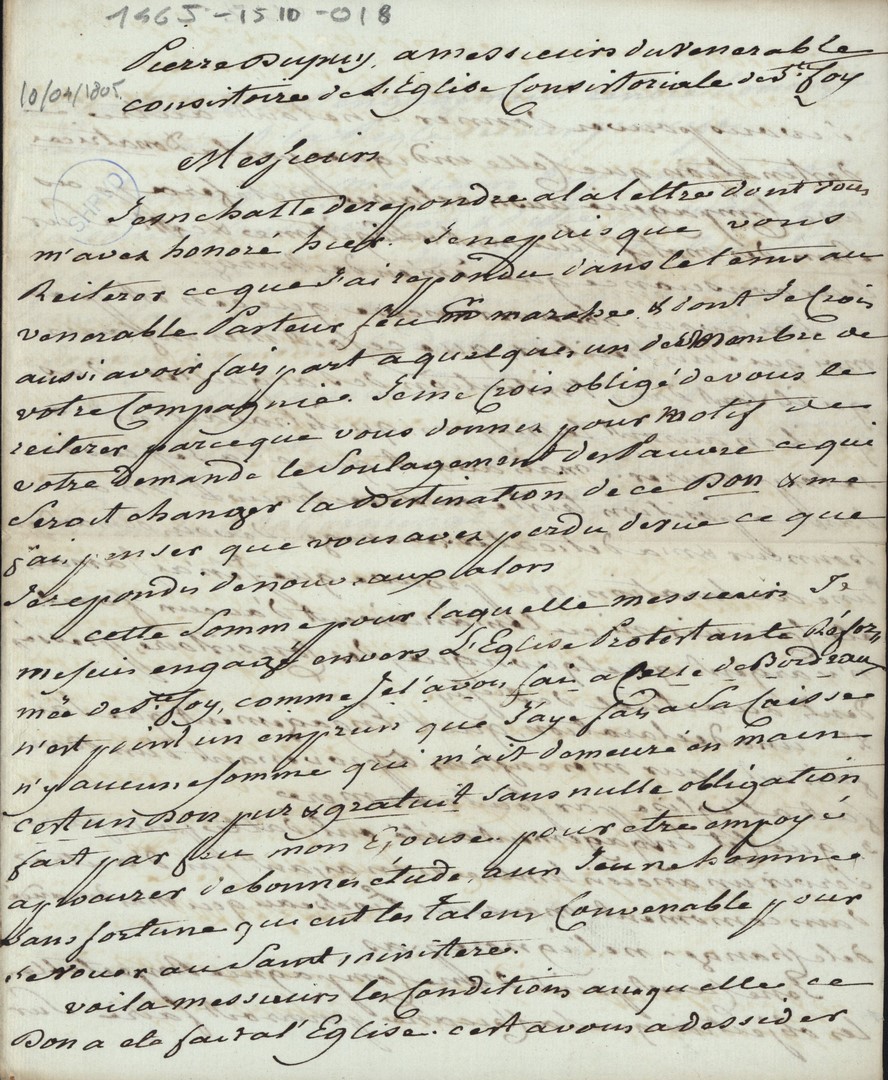 1965-1510-018
Pierre Dupuy, a messieurs du venerable
10/04/1805.
consistoire de L'Eglise Consistoriale de Ste. foy
Messieurs
SHPVD
Je m'hatte de repondre a la lettre dont vous
m'avez honoré hier. Je ne puis que vous
Reiterer ce que J'ai repondu dans le tems au
venerable Pasteur feu mr. & dont Je Crois
aussi avoir fais part a quelques un des Membre de
votre Compagnie. Je me Crois obligé de vous le
reiterer parceque vous donnez pour Motif de
votre demande le Soulagement des Pauvre ce qui
Seroit changer la Destination de ce Don & me
fai penser que vous avez perdu de vue ce que
Je repondis de nouveaux alors
cette Somme pour laquelle messieurs Je
me suis engagé envers L'Eglise Protestante Réfor
mée de Ste. foy, comme Je l'avois fai a Celle de Bordeau
n'est point un emprun que J'aye fais a Sa Caisse
n'y aucune Somme qui m'ait demeuré en main
c'est un Don pur & gratuit Sans nulle obligation
fait par feu mon Epouse pour etre employé
a procurer de bonnes étude a un Jeune homme
Sans fortune qui eut les Talens Convenable pour
se vouer au Saint ministere.
voila messieurs les Conditions auxquelle ce
Don a eté fai a l'Eglise. c'est a vous a dessider